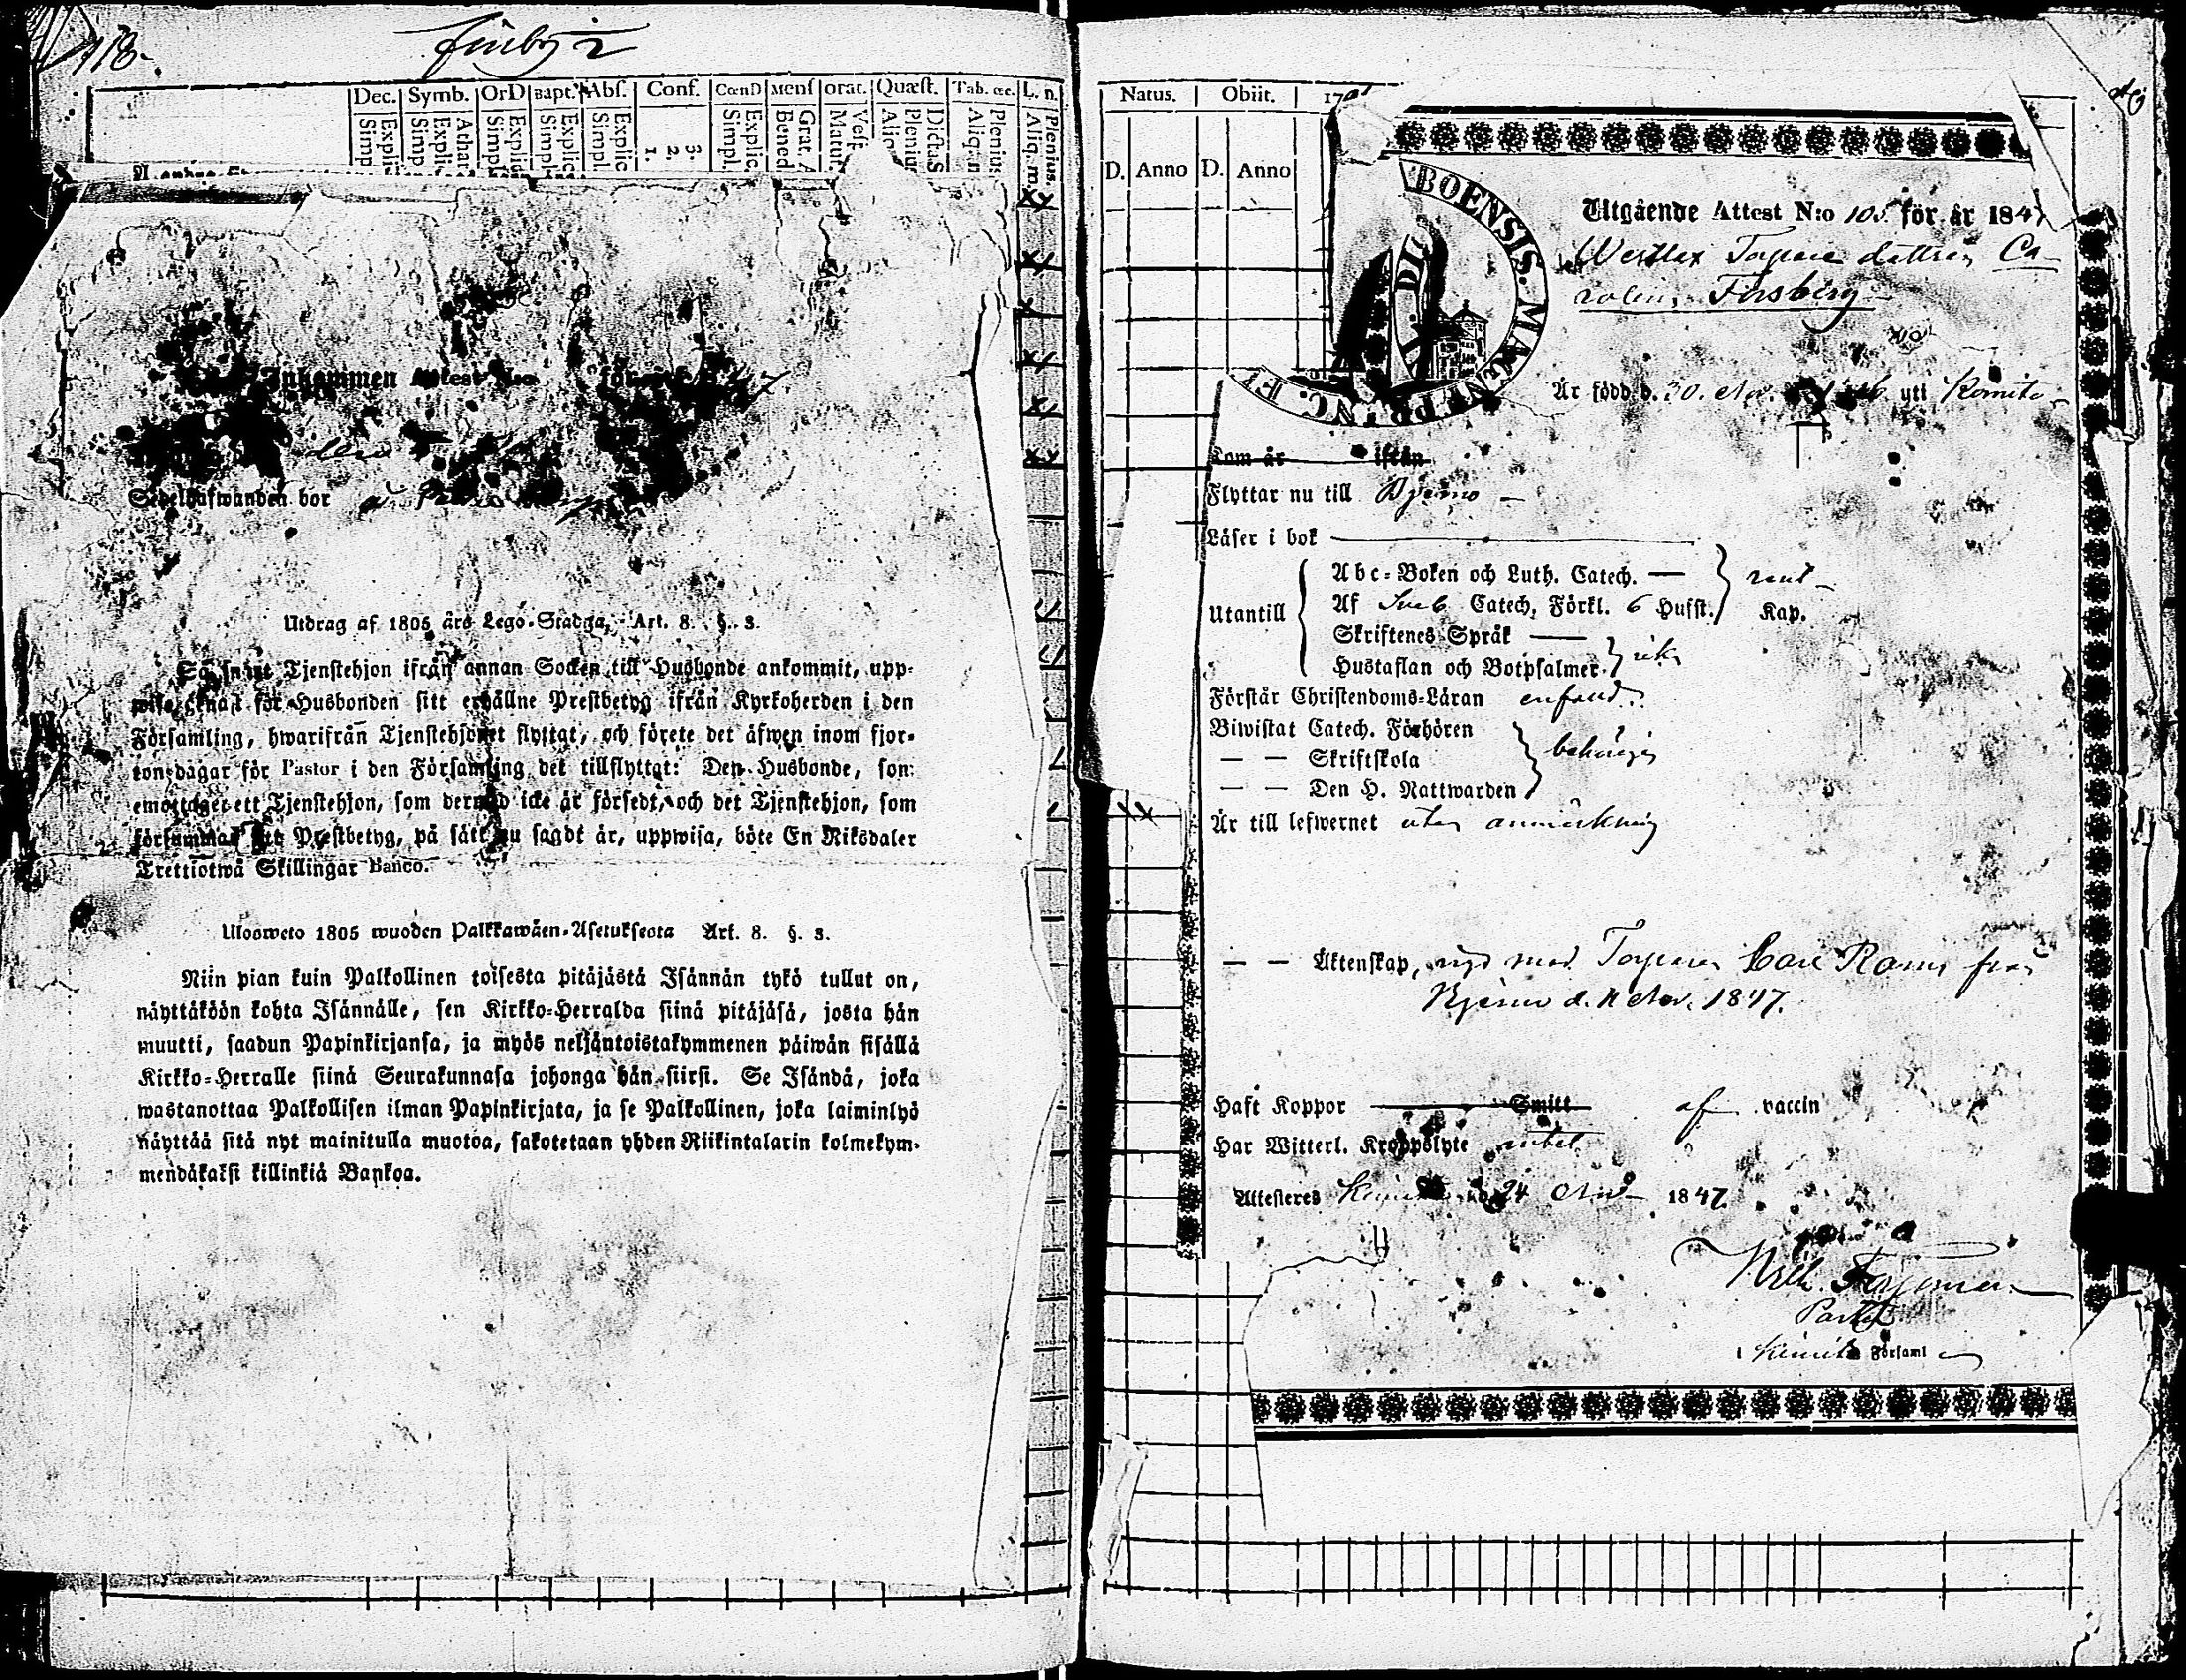 118.
Finby 2
Dec. Symb. OrD Bapt. Abs. Conf. CœnD Mens orat. Quæst. Tab. œc. L. n.
Simp Explic Simp Explic Athan Simpl Explic Simpl Explic Simpl. Explic 1. 2. 3. Simpl. Explic Bened Grat. A Matut. Vesp Aliq. Plenius Dicta S Aliq. n Plenius Aliq. m. Plenius.
Inkommen Attest N:o för
den
Sedelhafwanden bor
Utdrag af 1805 års Lego-Stadga, Art. 8. §. 3.
Så snart Tjenstehjon ifrån annan Socken till Husbonde ankommit, upp-
wise genast för Husbonden sitt erhållne Prestbetyg ifrån Kyrkoherden i den
Församling, hwarifrån Tjenstehjonet flyttat, och förete det äfwen inom fjor-
ton dagar för Pastor i den Församling det tillflyttat: Den Husbonde, som
emottaget ett Tjenstehjon, som dermed icke är försedt, och det Tjenstehjon, som
försummar sitt Prestbetyg, på sätt nu sagdt är, uppwisa, böte En Riksdaler
Trettiotwå Skillingar Banco.
Uloosweto 1805 wuoden Palkkawäen-Asetuksesta Art. 8. §. 3.
Niin pian kuin Palkollinen toisesta pitäjästä Isännän tykö tullut on,
näyttäköön kohta Isännälle, sen Kirkko-Herralda siinä pitäjäsä, josta hän
muutti, saadun Papinkirjansa, ja myös neljäntoistakymmenen päiwän sisällä
Kirkko-Herralle siinä Seurakunnasa johonga hän siirsi. Se Isändä, joka
wastanottaa Palkollisen ilman Papinkirjata, ja se Palkollinen, joka laiminlyö
näyttää sitä nyt mainitulla muotoa, sakotetaan yhden Riikintalarin kolmekym-
mendäkaksi killinkiä Bankoa.
Natus. Obiit. 17
D. Anno D. Anno
BOENSIS. MAGNI PRINC. F
Utgående Attest N:o 105 för år 184
Torpare dottren Ca-
rolina Forsberg
Är född d. 30. Nov. uti Kemito
Kom år ifrån
Flyttar nu till Bjerno
Läser i bok
Utantill
Abc-Boken och Luth. Catech. rent
Af Sveb Catech. Förkl. 6 Husst. Kap.
Skriftenes Språk
Hustaflan och Botpsalmer.
Förstår Christendoms-Läran enfald.
Biwistat Catech. Förhören
— — Skriftskola behörigen
— — Den H. Nattwarden
Är till lefwernet utan anmärkning
— — Äktenskap, med Torparen Carl från
Bjerno d. Nov. 1847.
Haft Koppor Smitt af vaccin
Har Witterl. Kroppslyte intet
Attesteres Kimito d. 24 Nov 1847

i Kimito Församl